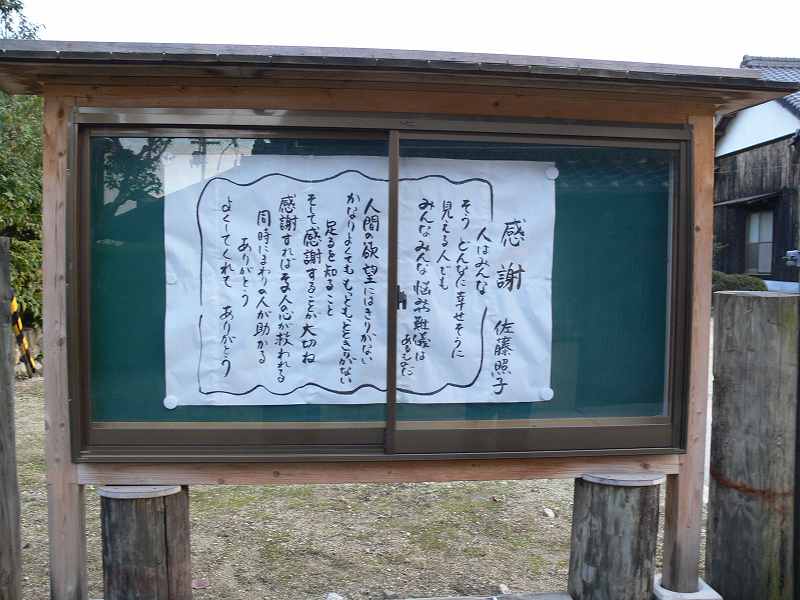 感謝 佐藤照子
人はみんな
そう どんなに幸せそうに
見える人でも
みんなみんな 悩みや難儀は
あるものだ
人間の欲望にはきりがない
かなりよくても もっともっとときりがない
足るを知ること
そして感謝することが大切ね
感謝すればその人の心が救われる
同時にまわりの人が助かる
ありがとう
よくしてくれて ありがとう